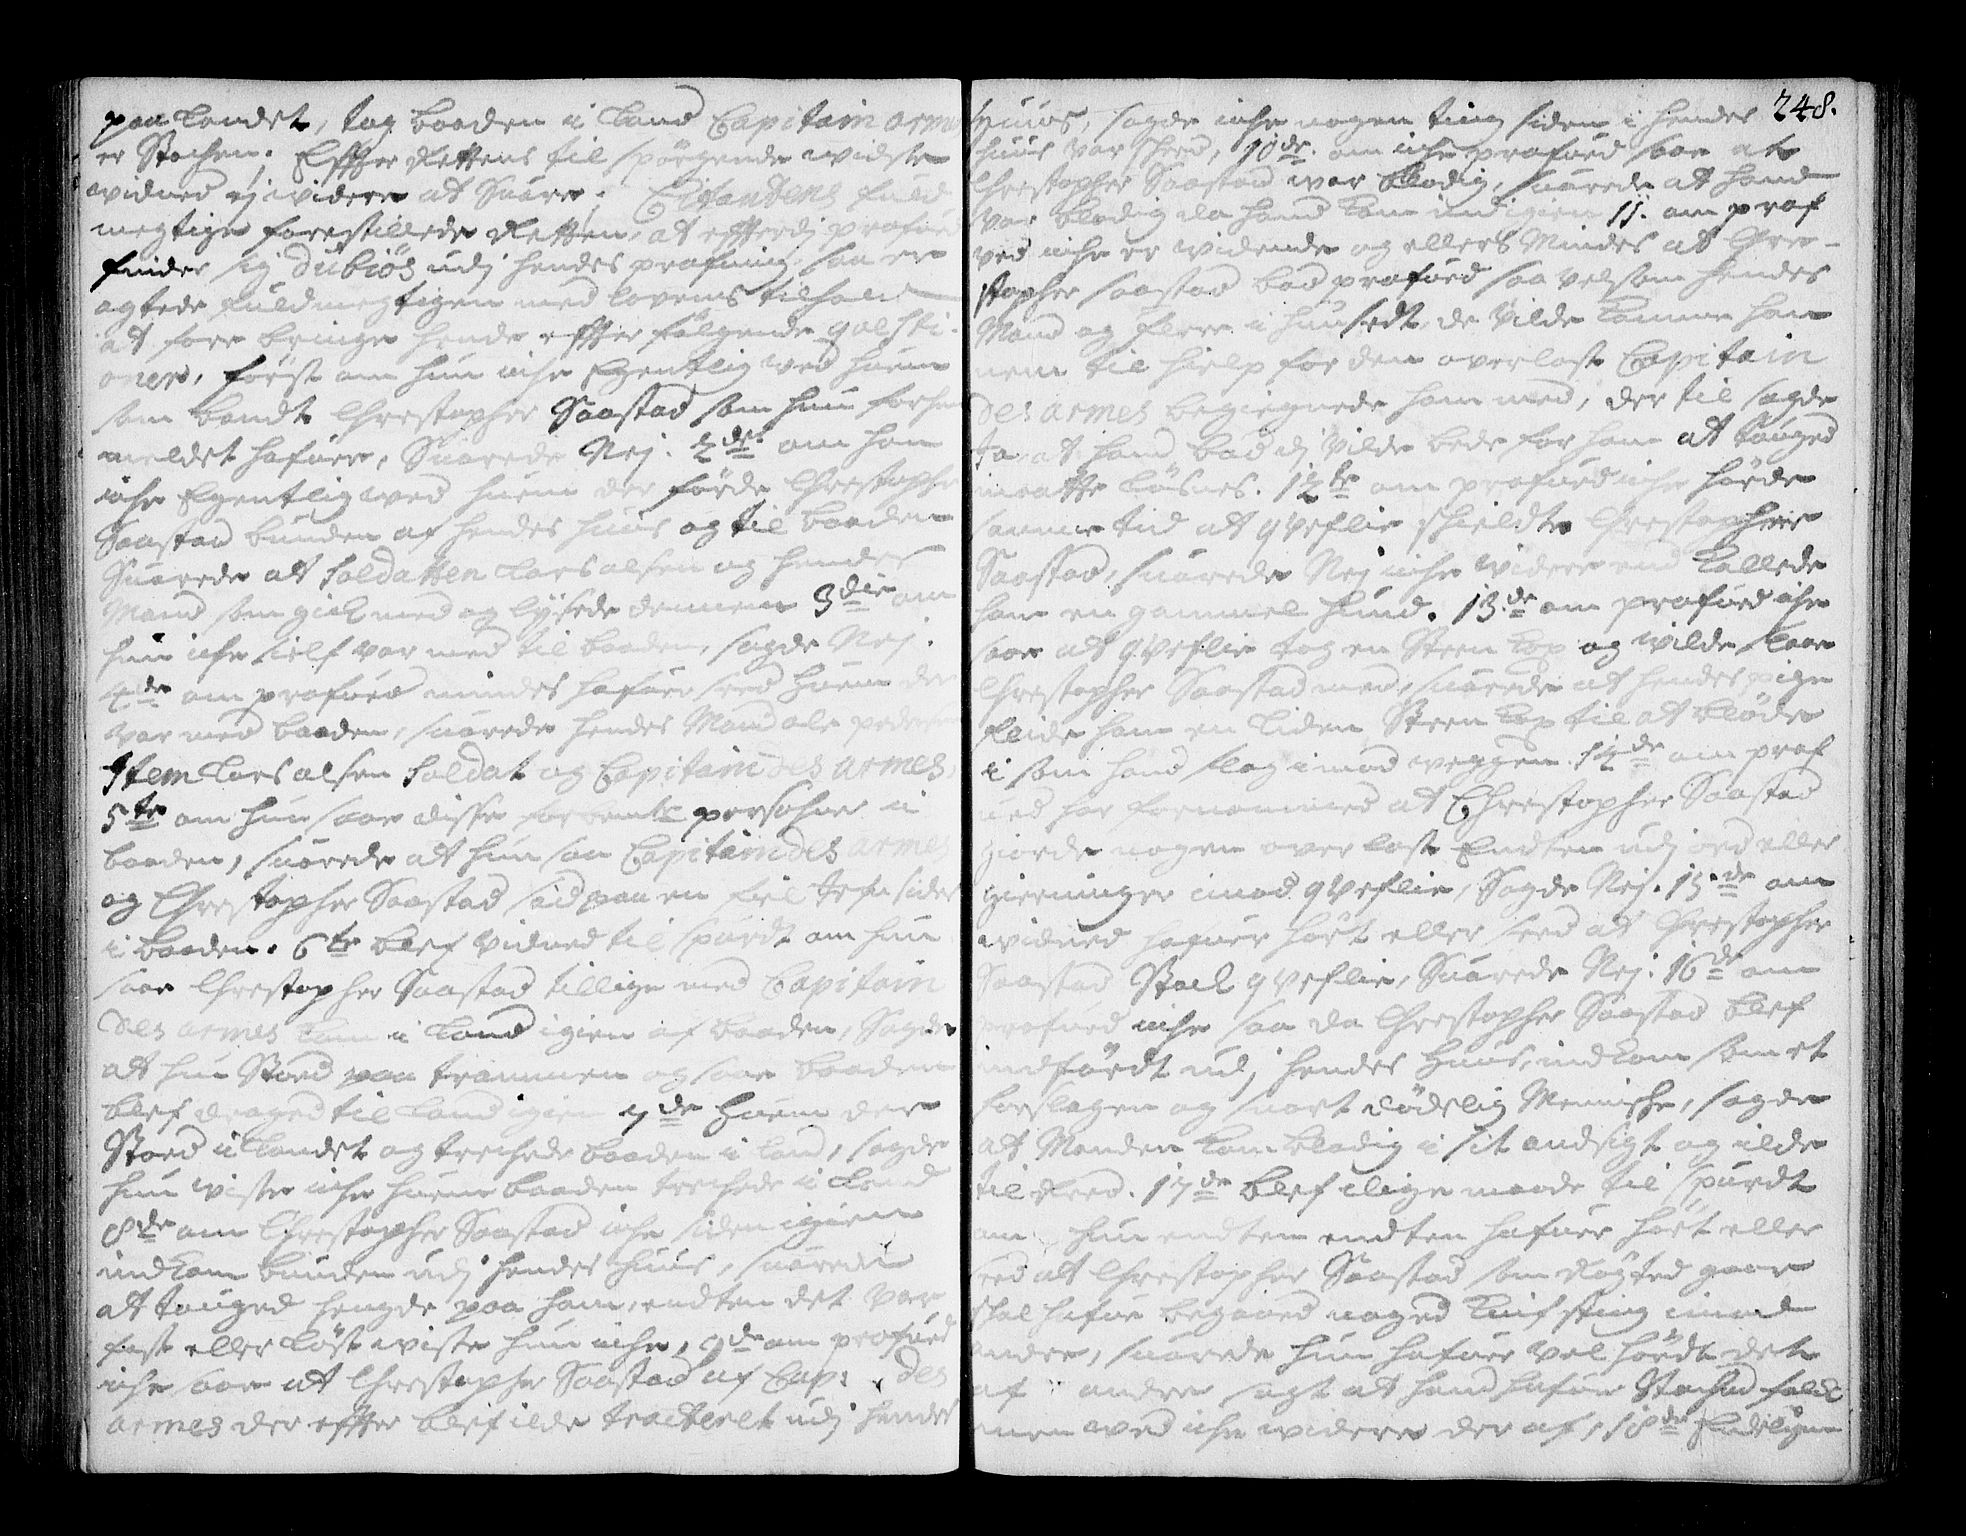 paa Landet, tog baaden i Land Capitain arme
er Stochen. Effter Rettens til spørgende widste
widned ej widere at Suare; Citantens fuld
megtige forestillede Retten, at effterdj profued
finder sig dubiøs udj hendes profning, saa er
agtede fuldmegtigen med lovens tilhold
at forre bringe hende effter følgende qvæsti-
oner, først om hun iche Egentlig wed huem
som bandt Chrestopher Saastad som hun forhen
meldet hafuer, Suarede Nej. 2de om hun
iche Egentlig wed huem der førde Chrestopher
Saastad bunden af hendes huus og til baaden
Suarede at Soldatten Lars olsen og hendes
Mand som gick med og lysede dennem 3die om
hun iche sielf var med til baaden, sagde Nej.
4de om profued mindes hafuer seed huem der
var med baaden, suarede hendes Mand ole peders
Item Lars olsen Soldat og Capitain des armes,
5te om hun saae disse forbemte persohner i
baaden, suarede at hun saa Capitain des armes
og Chrestopher Saastad sad paa en fiel tofte sides
i baaden. 6te blef vidned til spurdt om hun
saae Chrestopher Saastad tillige med Capitain
des armes kom i Land igien af baaden, Sagde
at hun Stoed paa trammen og saae baaden
blef draged til Land igien 7de huem der
Stoed i Landet og trechede baaden i Land, sagde
hun wiste iche huem baaden trechede i Land
8de om Chrestopher Saastad iche siden igien
indkom bunden udj hendes huus, suarede
at touged hengde paa ham, endten det var
fast eller løst wiste hun iche, 9de om profued
iche saae at Chrestopher Saastad af Cap: des
armes der effter blef ilde tracteret udj hendes
248.
huus, sagde iche nogen ting siden i hendes
huus var skeed, 10de om iche profued saae at
Chrestopher Saastad war blodig, suarede at hand
var blodig da hand kom ind igien 11. om prof
ved iche er widende og ellers Mindes at Chre-
stopher Saastad bad profued saa velsom hendes
Mand og flere i huusedt, de Vilde komme ham
nem til hielp for den overlast Capitain
des armes begiegnede ham med, der til sagde
Ja at hand bad dj Vilde bede for ham at touged
maatte løsnes. 12te om profued iche hørde
samme tid at qveflie skieldte Chrestopher
Saastad, suarede Nej iche widere end kallede
ham en gammel hund. 13de om profued iche
saae at qveflie tog en Steen kop og wilde slaae
Chrestopher Saastad med, suarede at hendes pige
fleide ham en liden Steen kop til at bløde
i som hand slog imod weggen 14de om prof
ued har fornommed at Chrestopher Saastad
giorde nogen over last Endten udj ord eller
gierninger imod qveflie, Sagde Nej. 15de om
widned hafuer hørt eller seed at Chrestopher
Saastad Stack qveflie, Suarede Nej. 16de om
profued iche saa da Chrestopher Saastad blef
indførdt udj hendes huus, indkom som et
forslagen og snart dødelig Menniche, sagde
at Manden kom blodig i sit andsigt og ilde
til Reed. 17de blef ilige maade til spurdt
om hun endten endten hafuer hørt eller
seed at Chrestopher Saastad som Røgted gaar
skal hafue begaaed noged knif sting imod
andre, suarede hun hafuer vel hørdt det
af andre sagt at hand hafuer Stuched folck
men wed iche widere der af, 18de Endeligen